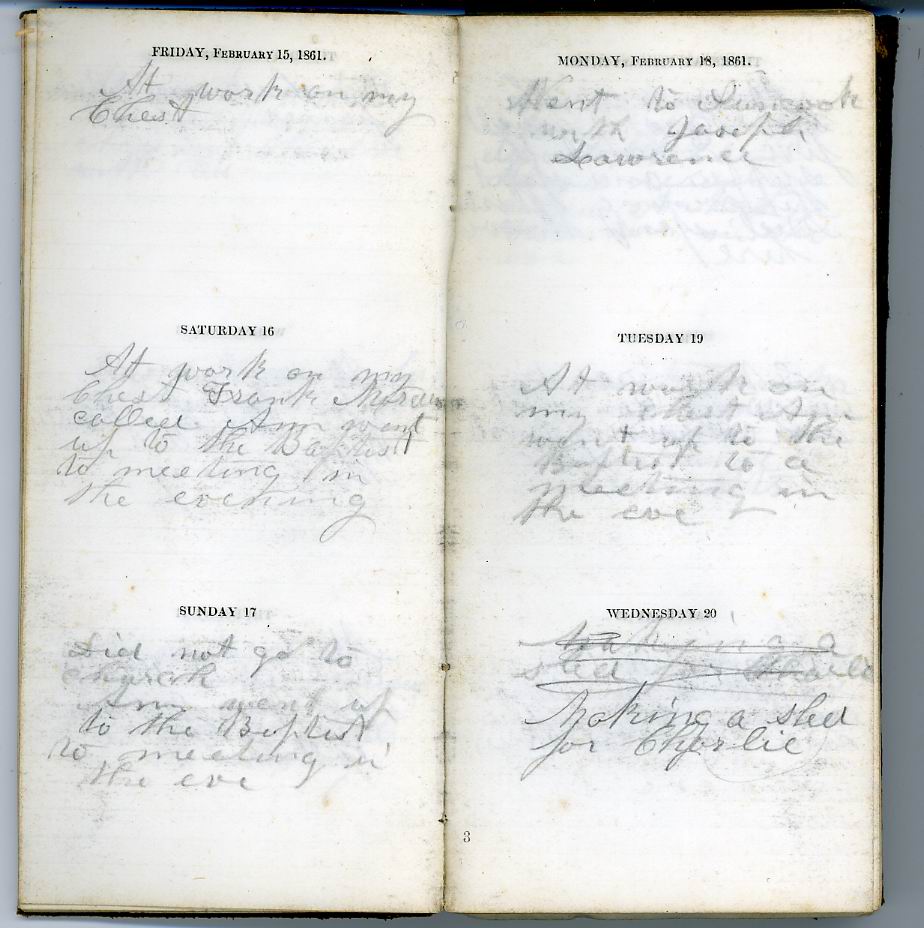 FRIDAY, FEBRUARY 15, 1861.
At work on my
Chest
SATURDAY 16
At work on my
Chest Frank
called Ann went
up to the Baptist
to meeting in
the evening
SUNDAY 17
Did not go to
church
Ann went up
to the Baptist
to meeting in
the eve
MONDAY, FEBRUARY 18, 1861.
Went to Suncook
with Joseph
Lawrence
TUESDAY 19
At work on
my chest Ann
went up to the
Baptist to a
meeting in
the eve
WEDNESDAY 20
Making a
sled for Charlie
Making a sled
for Charlie
3